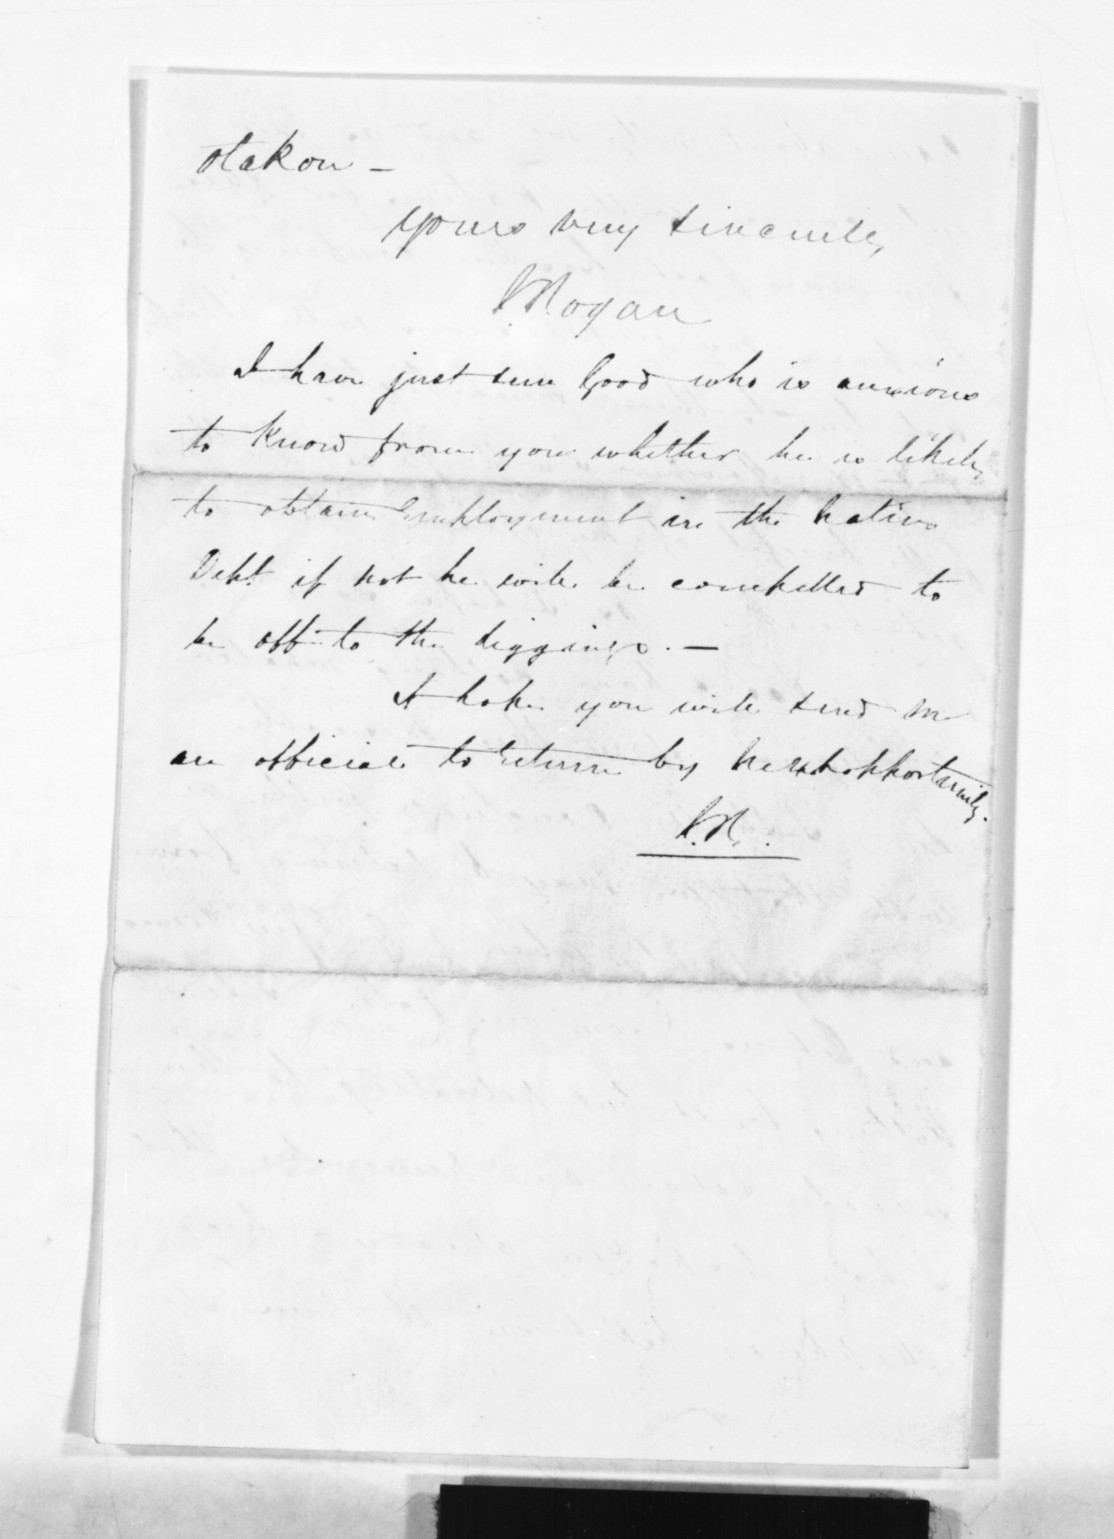 otakou -
Yours very sincerely,
J Rogan
I have just seen Good who is anxious
to know from you whether he is likely
to obtain employment in the Native
Dept if not he will be compelled to
be off to the diggings. -
I hope you will send me
an official to return by next opportunity.
J.R.